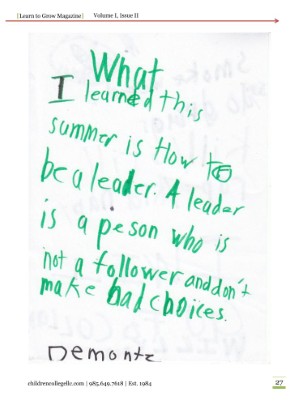 [Learn to Grow Magazine] Volume I, Issue II
What
I learned this
summer is How to
be a leader. A leader
is a peson who is
not a follower and don't
make bad choices.
Demonte
childrencollegellc.com | 985.649.7618 | Est. 1984
27